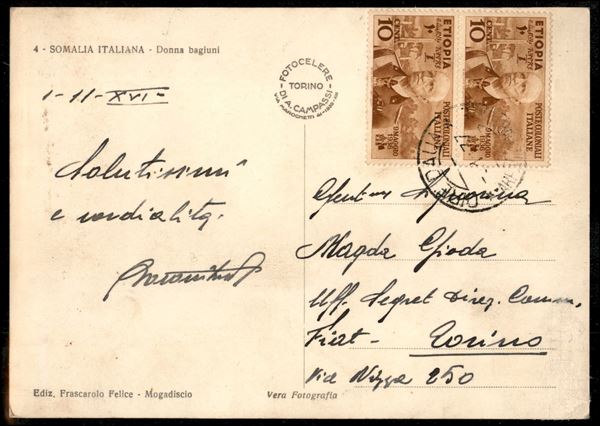 4 - SOMALIA ITALIANA - Donna bagiuni
1-11-XVI°
Salutissimi
e cordialità.
FOTOCELERE
TORINO
DI A. CAMPASSI
10
CENT.
ETIOPIA
POSTE COLONIALI
ITALIANE
9 MAGGIO
1936
10
CENT.
ETIOPIA
POSTE COLONIALI
ITALIANE
9 MAGGIO
1936
Gent.ma Signorina
Magda Gioda
Uff. Segret Direz. Comm.
Fiat - Torino
Via Nizza 250
Ediz. Frascarolo Felice - Mogadiscio
Vera Fotografia